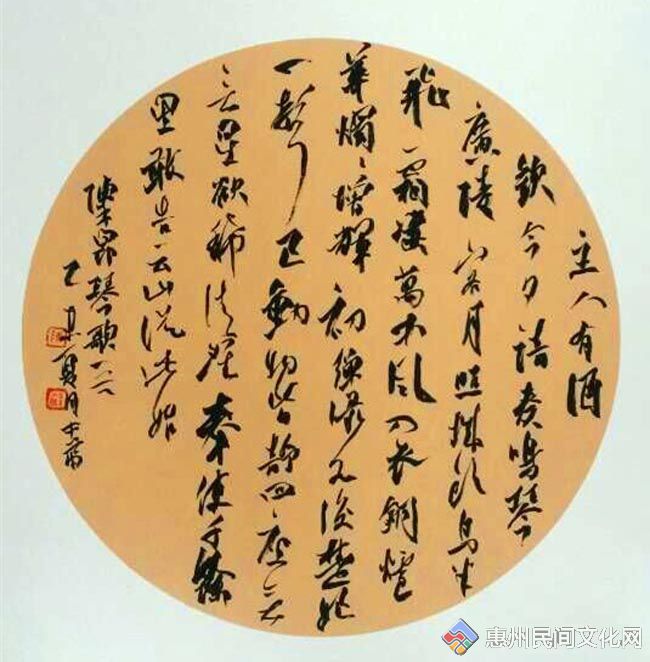 主人有酒
歡今夕請奏鳴琴
廣陵客月照城頭烏半
飛霜淒萬木風入衣銅爐
華燭々增輝初彈淥水後楚妃
一聲已動物皆靜四座無
言星欲稀清淮奉使千餘
里敢告云山從此始
琴歌
夏月
惠州民间文化网